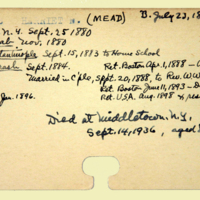 (MEAD) B. July 23, 1
N.Y. Sept. 25 1880
Nov. 1880
Sept. 15, 1883 to Home School
Sept. 1884. Ret. Boston Apr. 1, 1888 –
Married in C'ple, Sept. 20, 1888, to Rev. W.W.
Ret. Boston June 11, 1893 – D
Jan. 1896. Ret. USA. Aug 1898 & res
Died at Middletown, N.Y.,
Sept. 14, 1936, aged